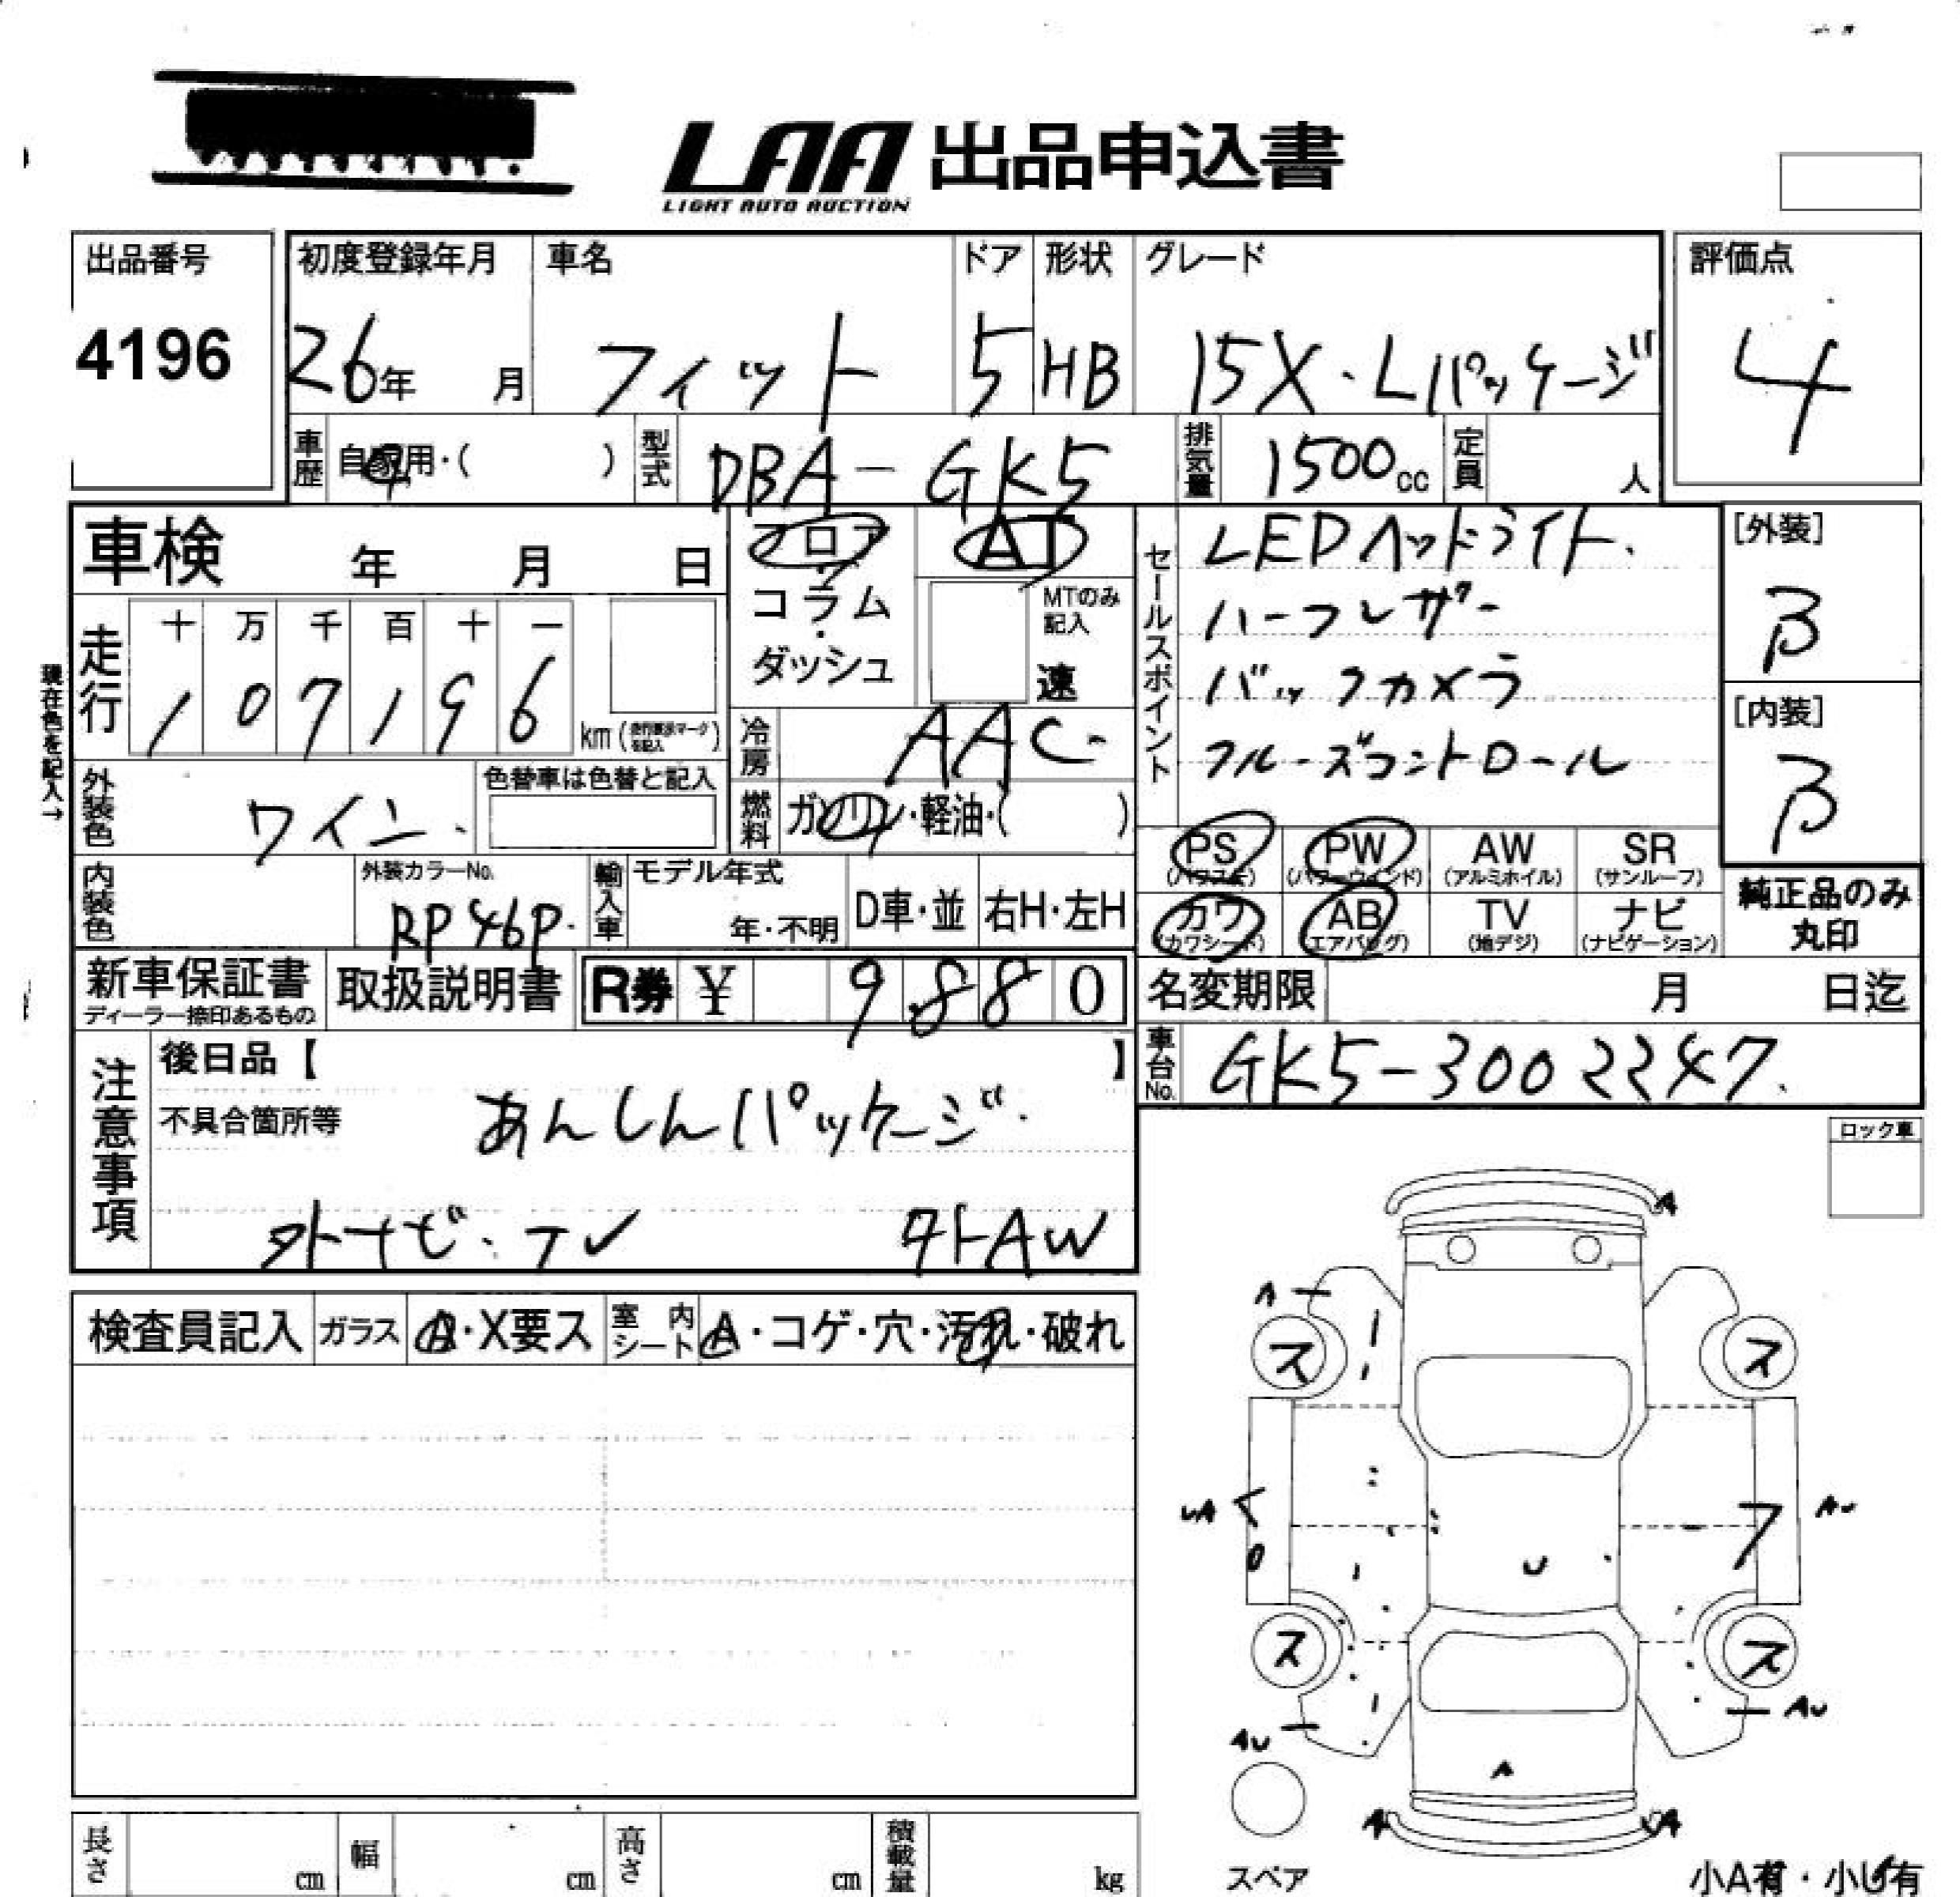 LAA 出品申込書
LIGHT AUTO AUCTION
出品番号 初度登録年月 車名 ドア 形状 グレード 評価点
4196 26年 月 フィット 5 HB 15X・Lパッケージ 4
車歴 自家用・( ) 型式 DBA-GK5 排気量 1500cc 定員 人
車検 年 月 日 フロア・コラム・ダッシュ AT MTのみ記入 速
セールスポイント LEDヘッドライト.
ハーフレザー
バックカメラ
クルーズコントロール
[外装] B
[内装] B
現在色を記入→
走行 十 万 千 百 十 一
1 0 7 1 9 6 km
冷房 AAC
外装色 ワイン 色替車は色替と記入 燃料 ガソリン・軽油・( )
PS (パワステ) PW (パワーウインド) AW (アルミホイル) SR (サンルーフ)
カワ (カワシート) AB (エアバッグ) TV (地デジ) ナビ (ナビゲーション)
純正品のみ丸印
内装色 外装カラーNo. RP46P 輸入車 モデル年式 年・不明 D車・並 右H・左H
新車保証書 ディーラー捺印あるもの 取扱説明書 R券 ¥ 9,880 名変期限 月 日迄
車台No. GK5-3002247
注意事項 後日品【 】
不具合箇所等 あんしんパッケージ
外ナビ・TV 外AW
ロック車
検査員記入 ガラス A・X要ス 室内シート A・コゲ・穴・汚れ・破れ
A
A
ス ス
UA AU
U
ス ス
AU AU
A
A UA
スペア
小A有・小U有
長さ cm 幅 cm 高さ cm 積載量 kg